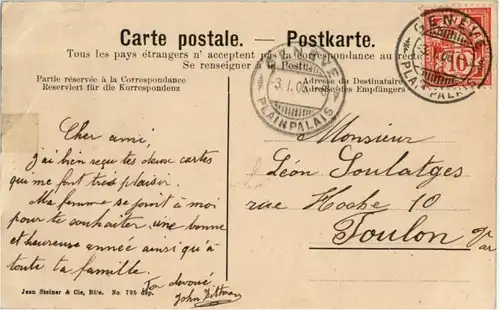 Carte postale. — Postkarte.
Tous les pays étrangers n'acceptent pas la correspondance au recto
Se renseigner à la Poste.
Partie réservée à la Correspondance
Reserviert für die Korrespondenz
Adresse du Destinataire
Adresse des Empfängers
GENÈVE
3. I. 0
PLAINPALAIS
GENÈVE
PLAINPALAIS
10
Cher ami,
J'ai bien reçu tes deux cartes
qui me font très plaisir.
Ma femme se joint à moi
pour te souhaiter une bonne
et heureuse année ainsi qu'à
toute ta famille.
Ton dévoué
John
Monsieur
Léon Soulatges
rue Hoche 10
Toulon
Jean Steiner & Cie, Bâle. No. 795 dép.